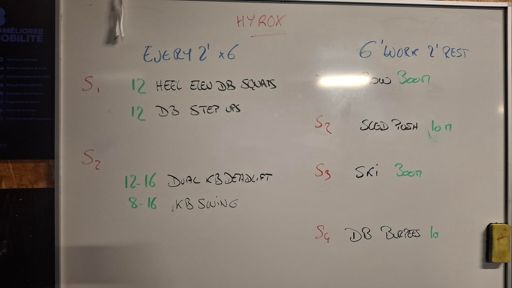 AMÉLIORER
MOBILITÉ
HYROX
EVERY 2' x6
S1 12 HEEL ELEV DB SQUATS
12 DB STEP UPS
S2
12-16 DUAL KB DEADLIFT
8-16 KB SWING
6' WORK 2' REST
300m
S2 SLED PUSH 10m
S3 SKI 300m
S4 DB BURPEES 10